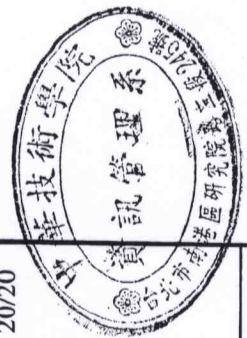 中華技術學院
資訊管理系
台北市南港區研究院路三段245號
20/20